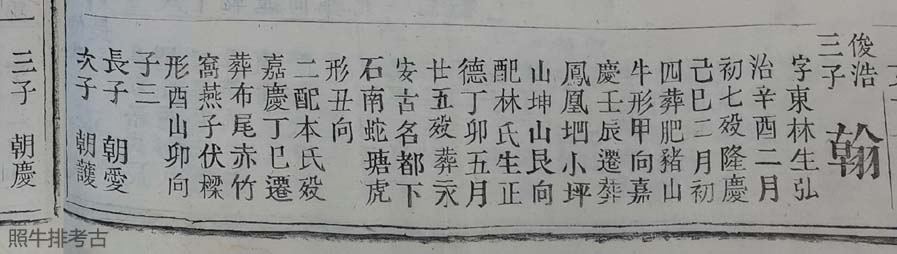 俊浩
三子 翰
字東林生弘
治辛酉二月
初七殁隆慶
己巳二月初
四葬肥豬山
牛形甲向嘉
慶壬辰遷葬
鳳凰垇小坪
山坤山艮向
配林氏生正
德丁卯五月
廿五殁葬永
安古名都下
石南蛇瑭虎
形丑向
二配本氏殁
嘉慶丁巳遷
葬布尾赤竹
窩燕子伏樑
形酉山卯向
子三
長子 朝愛
次子 朝護
三子 朝慶
照牛排考古